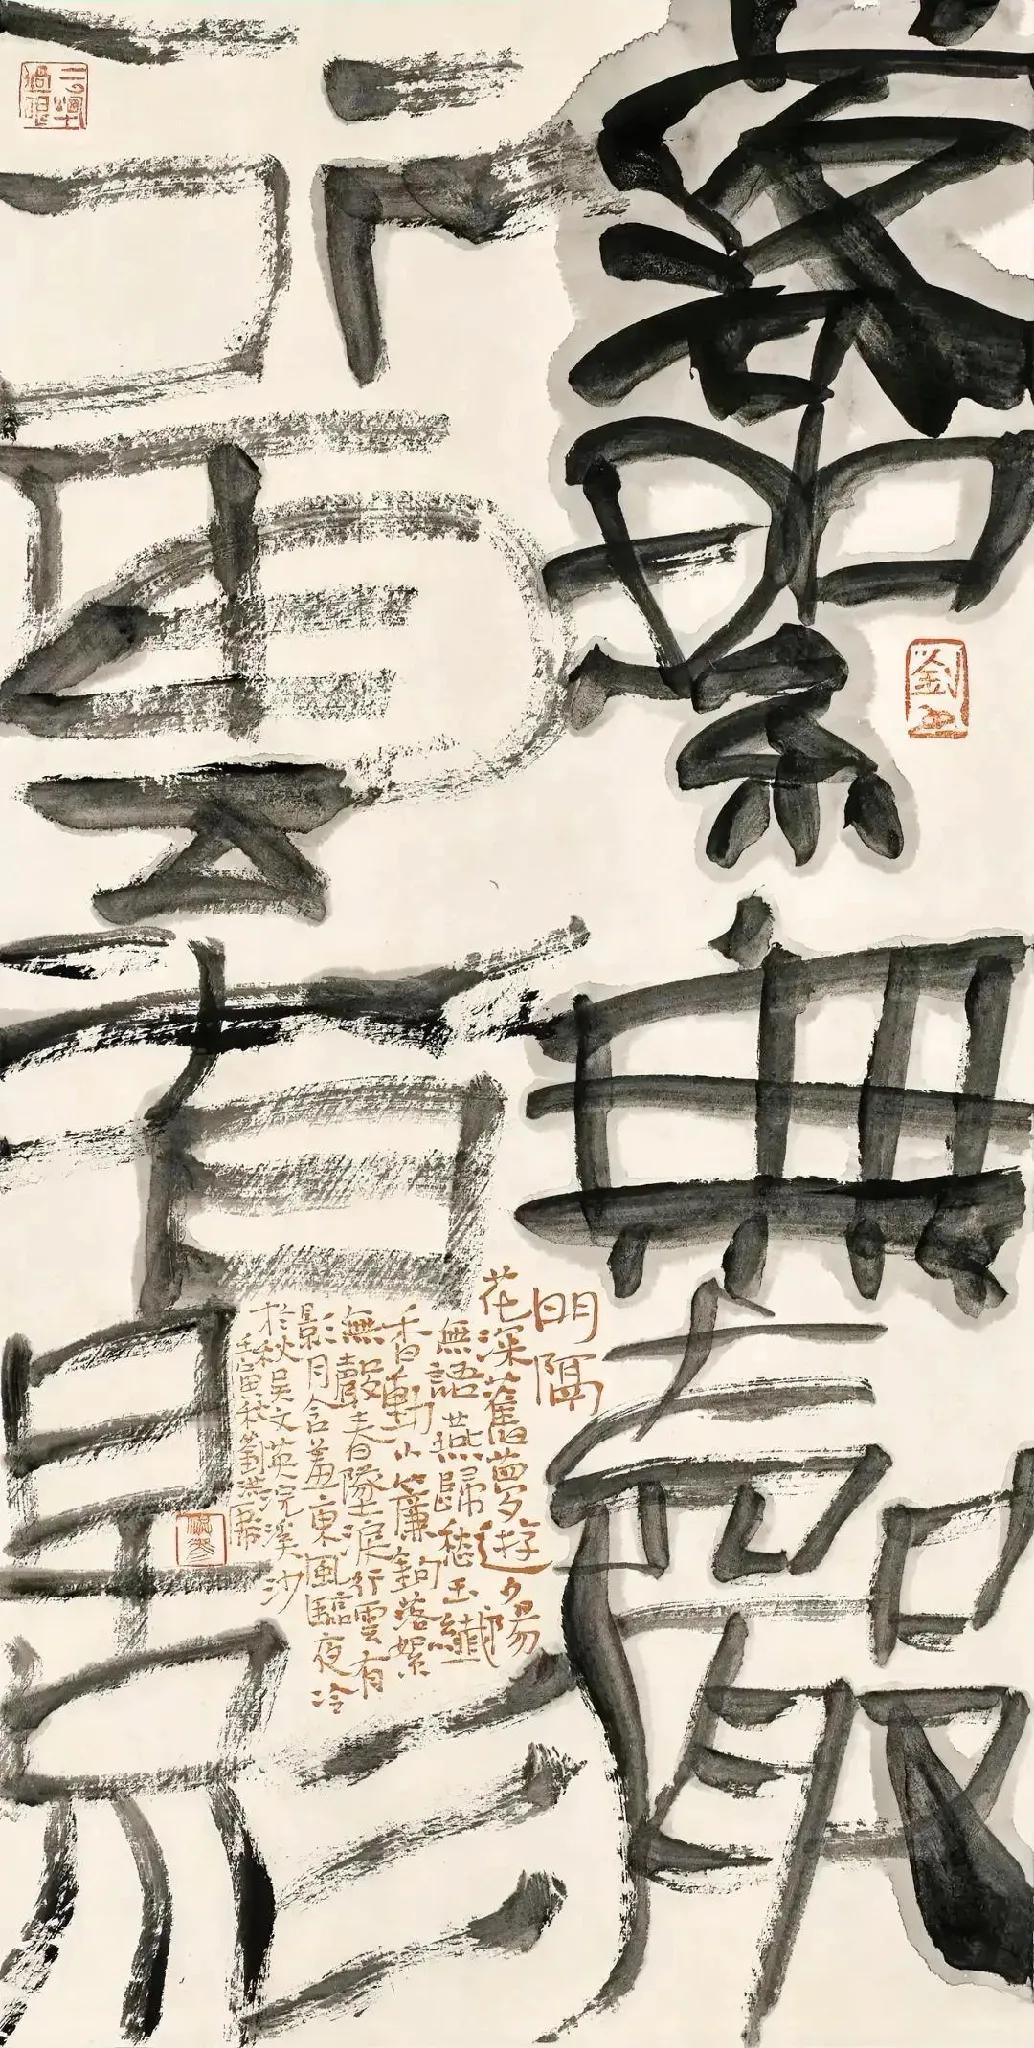 落絮無聲
行雲有影
門隔
花深舊夢遊夕陽
無語燕歸愁玉纖
香動小簾鉤落絮
無聲春墜淚行雲有
影月含羞東風臨夜冷
於秋吳文英浣溪沙
壬寅秋劉洪
劉